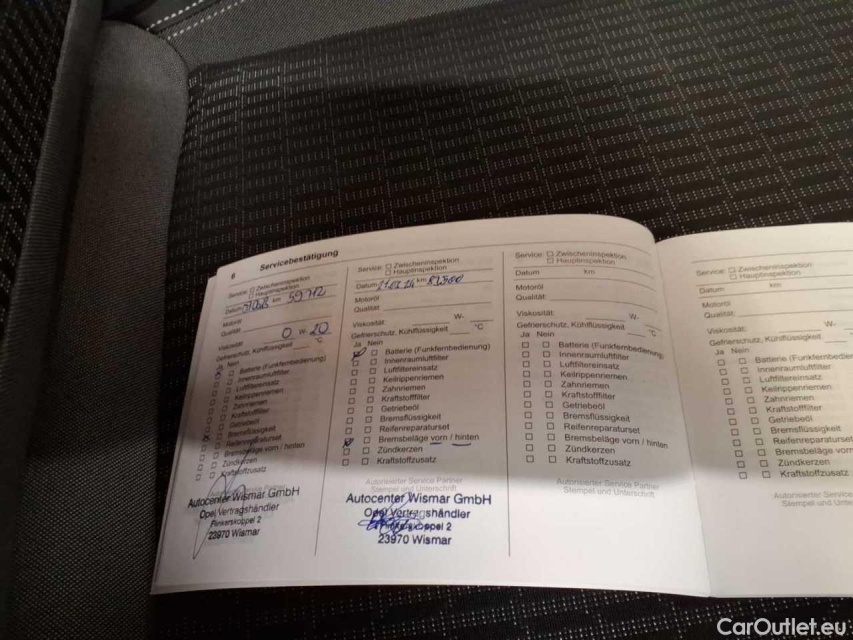 6 Servicebestätigung
Service: Zwischeninspektion
Hauptinspektion
Datum km 59712
Motoröl
Qualität
Viskosität: 0 W- 20
Gefrierschutz, Kühlflüssigkeit °C
Ja Nein
Batterie (Funkfernbedienung)
Innenraumluftfilter
Luftfiltereinsatz
Keilrippenriemen
Zahnriemen
Kraftstofffilter
Getriebeöl
Bremsflüssigkeit
Reifenreparaturset
Bremsbeläge vorn / hinten
Zündkerzen
Kraftstoffzusatz
Autocenter Wismar GmbH
Opel Vertragshändler
23970 Wismar
Service: Zwischeninspektion
Hauptinspektion
Datum km
Motoröl
Qualität:
Viskosität: W-
Gefrierschutz, Kühlflüssigkeit °C
Ja Nein
Batterie (Funkfernbedienung)
Innenraumluftfilter
Luftfiltereinsatz
Keilrippenriemen
Zahnriemen
Kraftstofffilter
Getriebeöl
Bremsflüssigkeit
Reifenreparaturset
Bremsbeläge vorn / hinten
Zündkerzen
Kraftstoffzusatz
Autorisierter Service Partner
Stempel und Unterschrift
Autocenter Wismar GmbH
Opel Vertragshändler
23970 Wismar
Service: Zwischeninspektion
Hauptinspektion
Datum km
Motoröl
Qualität:
Viskosität: W-
Gefrierschutz, Kühlflüssigkeit °C
Ja Nein
Batterie (Funkfernbedienung
Innenraumluftfilter
Luftfiltereinsatz
Keilrippenriemen
Zahnriemen
Kraftstofffilter
Getriebeöl
Bremsflüssigkeit
Reifenreparaturset
Bremsbeläge vorn / hinten
Zündkerzen
Kraftstoffzusatz
Autorisierter Service Partner
Stempel und Unterschrift
Service: Zwischeninspektion
Hauptinspektion
Datum km
Motoröl
Qualität:
Viskosität: W-
Gefrierschutz, Kühlflüssigkeit
Ja Nein
Batterie (Funkfernbedie
Innenraumluftfilter
Luftfiltereinsatz
Keilrippenriemen
Zahnriemen
Kraftstofffilter
Getriebeöl
Bremsflüssigkeit
Reifenreparaturset
Bremsbeläge vorn
Zündkerzen
Kraftstoffzusatz
Autorisierter Service
Stempel und Unte
CarOutlet.eu